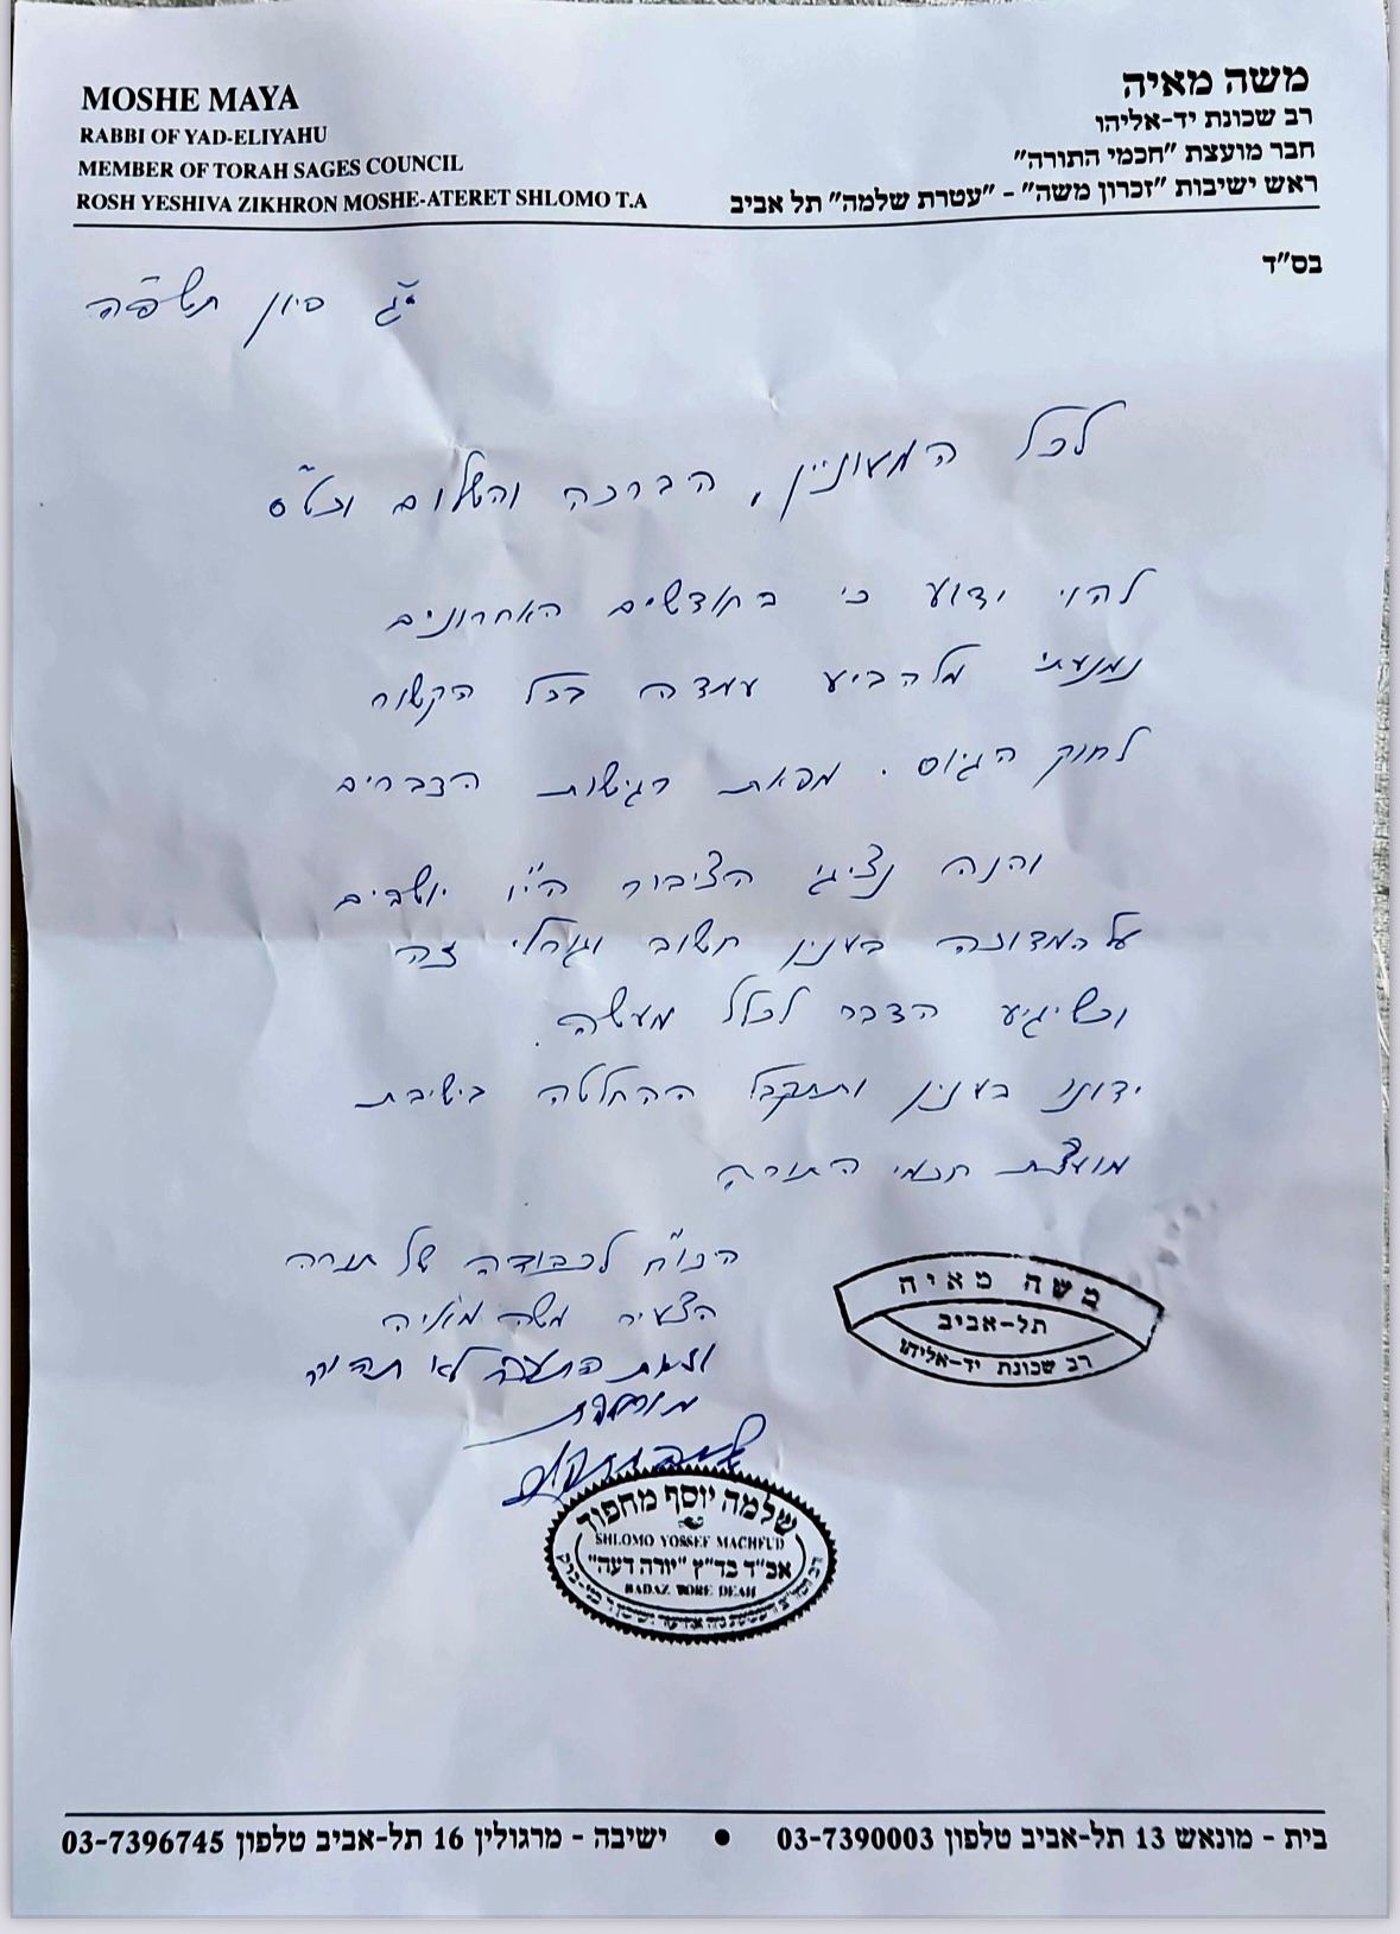 משה מאיה
רב שכונת יד-אליהו
חבר מועצת "חכמי התורה"
ראש ישיבות "זכרון משה" - "עטרת שלמה" תל אביב
MOSHE MAYA
RABBI OF YAD-ELIYAHU
MEMBER OF TORAH SAGES COUNCIL
ROSH YESHIVA ZIKHRON MOSHE-ATERET SHLOMO T.A
בס"ד
י"ג סיון תשפ"ה
לכל המעוניין, הברכה והשלום וכט"ס
להוי ידוע כי בחודשים האחרונים
נמנעתי מלהביע עמדה בכל הקשור
לחוק הגיוס. מפאת רגישות הדברים
והנה נציגי הציבור הי"ו יושבים
על המדוכה בענין חשוב וגורלי זה
וכשיגיע הדבר לכלל מעשה.
ידונו בענין ותתקבל ההחלטה בישיבת
מועצת חכמי התורה
הכו"ח לכבודה של תורה
הצעיר משה מאיה
וזאת התורה לא תהא
מוחלפת
משה מאיה
תל-אביב
רב שכונת יד-אליהו
שלמה יוסף מחפוד
SHLOMO YOSSEF MACHFUD
אב"ד בד"ץ "יורה דעה"
BADAZ YORE DEAH
בית - מונאש 13 תל-אביב טלפון 03-7390003 • ישיבה - מרגולין 16 תל-אביב טלפון 03-7396745